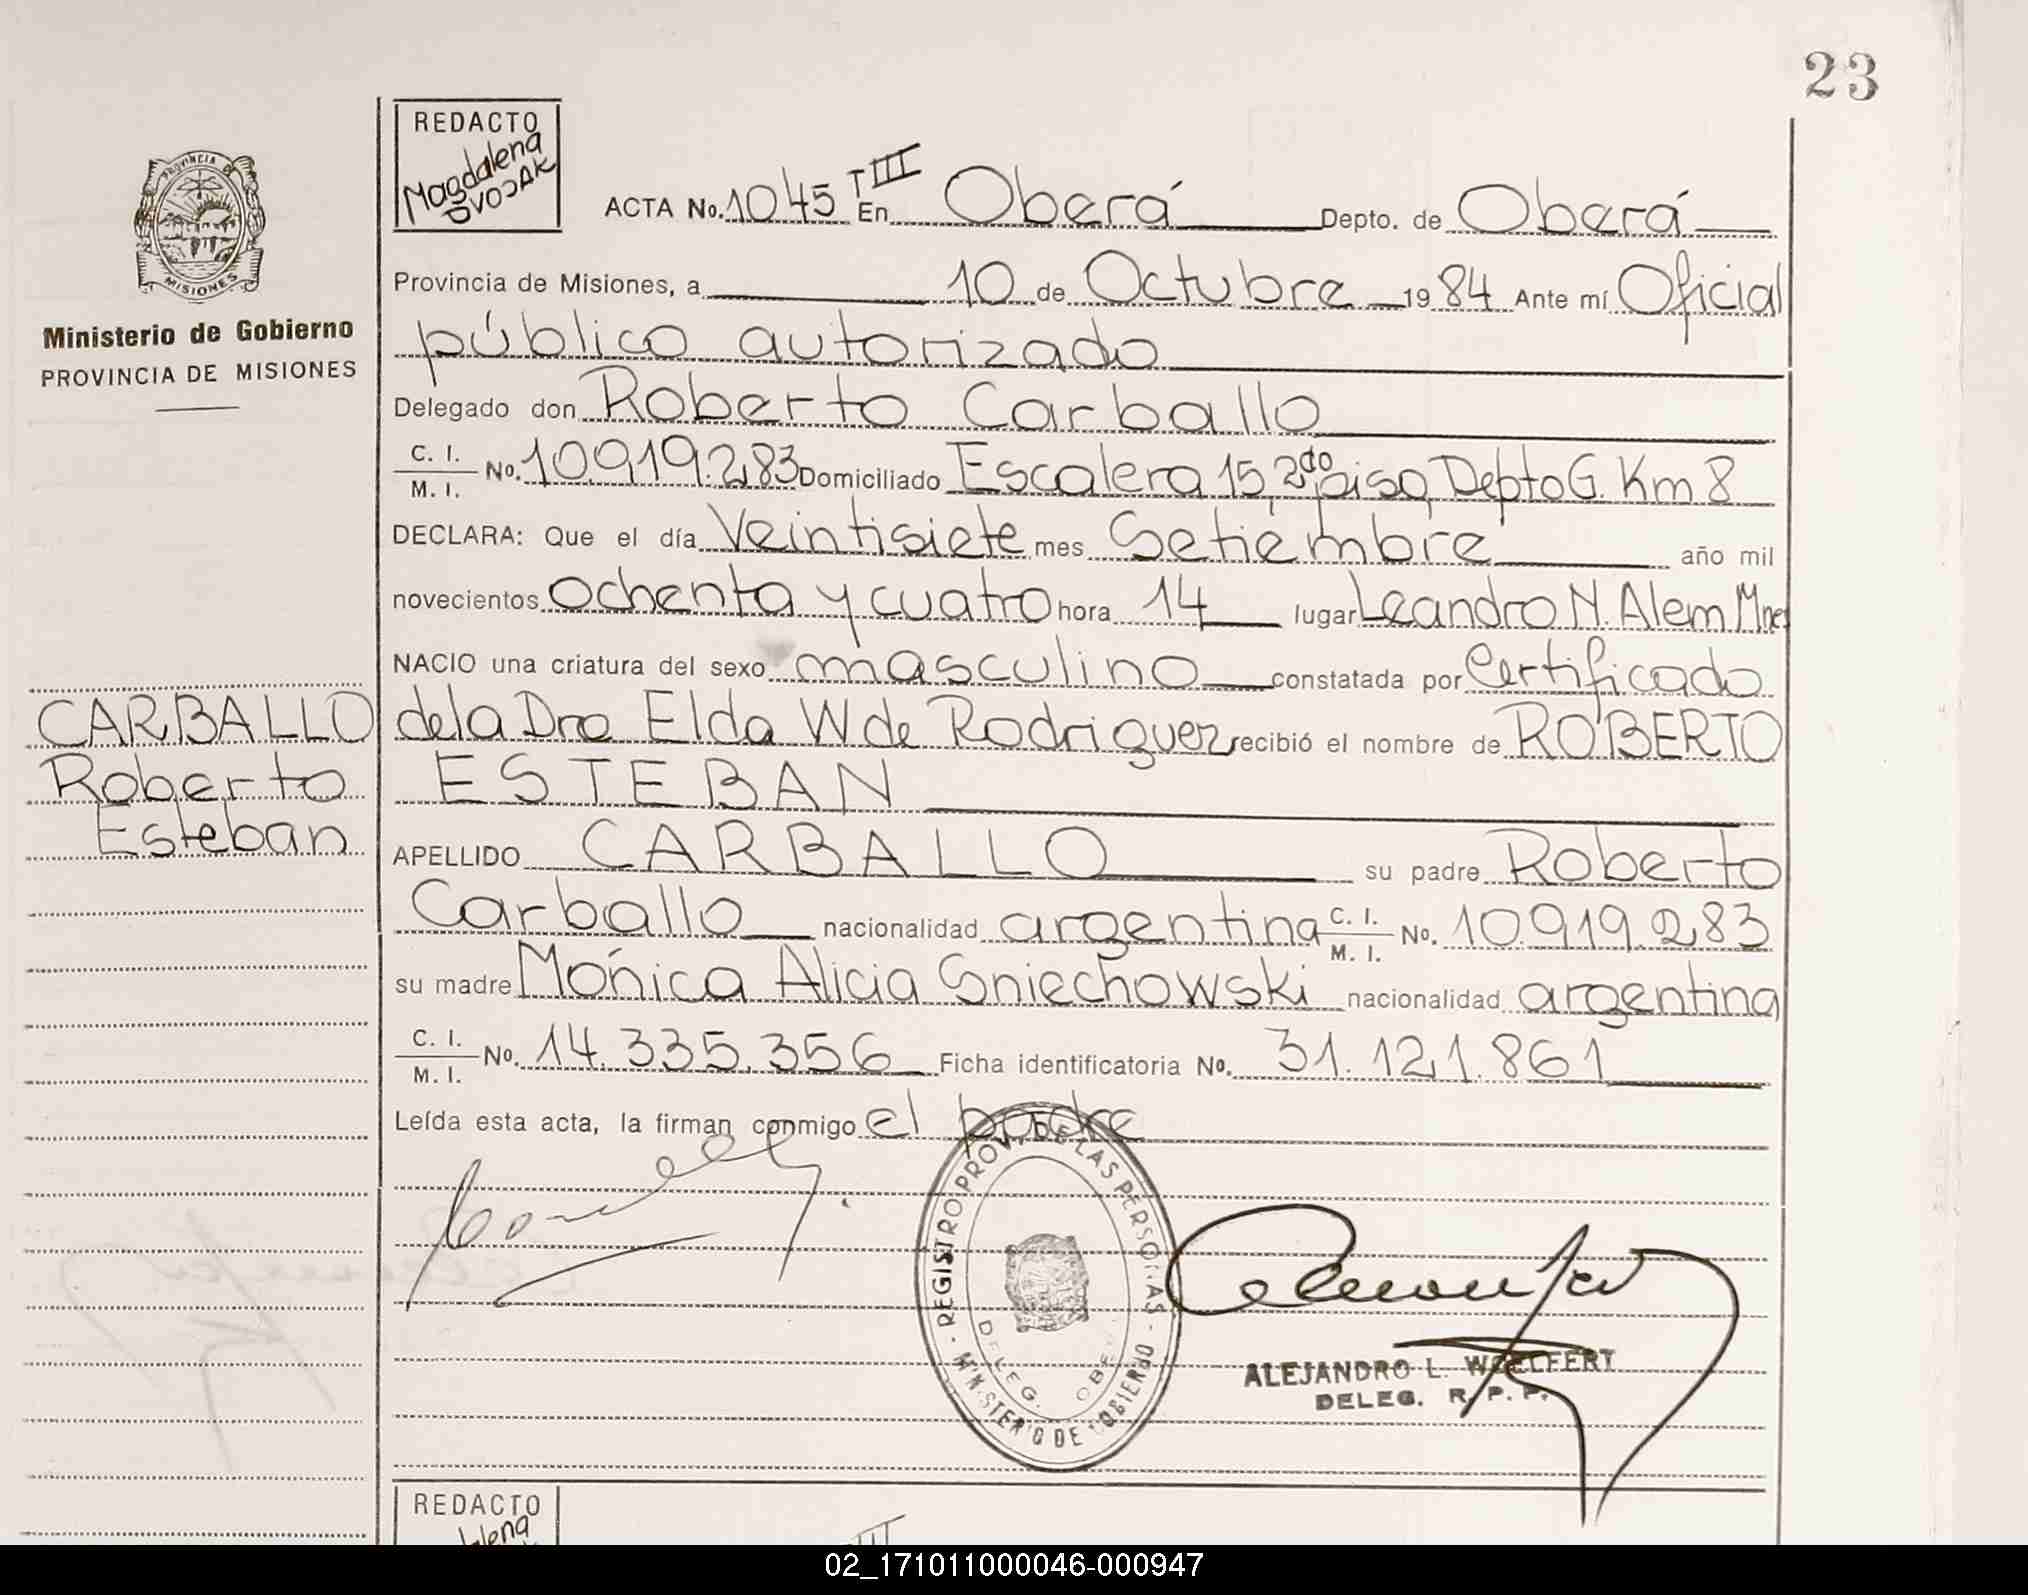 23
REDACTO
Magdalena
DVOJAK
PROVINCIA DE
MISIONES
Ministerio de Gobierno
PROVINCIA DE MISIONES
ACTA No. 1045 TIII En Oberá Depto. de Oberá
Provincia de Misiones, a 10 de Octubre 1984 Ante mí Oficial
público autorizado
Delegado don Roberto Carballo
C. I.
M. I. No. 10.919.283 Domiciliado Escalera 15, 2do piso, Depto G. Km 8
DECLARA: Que el día Veintisiete mes Setiembre año mil
novecientos ochenta y cuatro hora 14 lugar Leandro N. Alem Mnes
NACIO una criatura del sexo masculino constatada por Certificado
de la Dra Elda W de Rodriguez recibió el nombre de ROBERTO
ESTEBAN
CARBALLO
Roberto
Esteban
APELLIDO CARBALLO su padre Roberto
Carballo nacionalidad argentina C. I.
M. I. No. 10.919.283
su madre Mónica Alicia Sniechowski nacionalidad argentina
C. I.
M. I. No. 14.335.356 Ficha identificatoria No. 31.121.861
Leída esta acta, la firman conmigo el padre
REGISTRO PROV. DE LAS PERSONAS - MINISTERIO DE GOBIERNO -
DELEG. OBE
ALEJANDRO L. WOELFERT
DELEG. R. P. P.
REDACTO
III
02_171011000046-000947